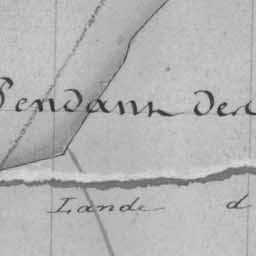 Pendant des
Lande d